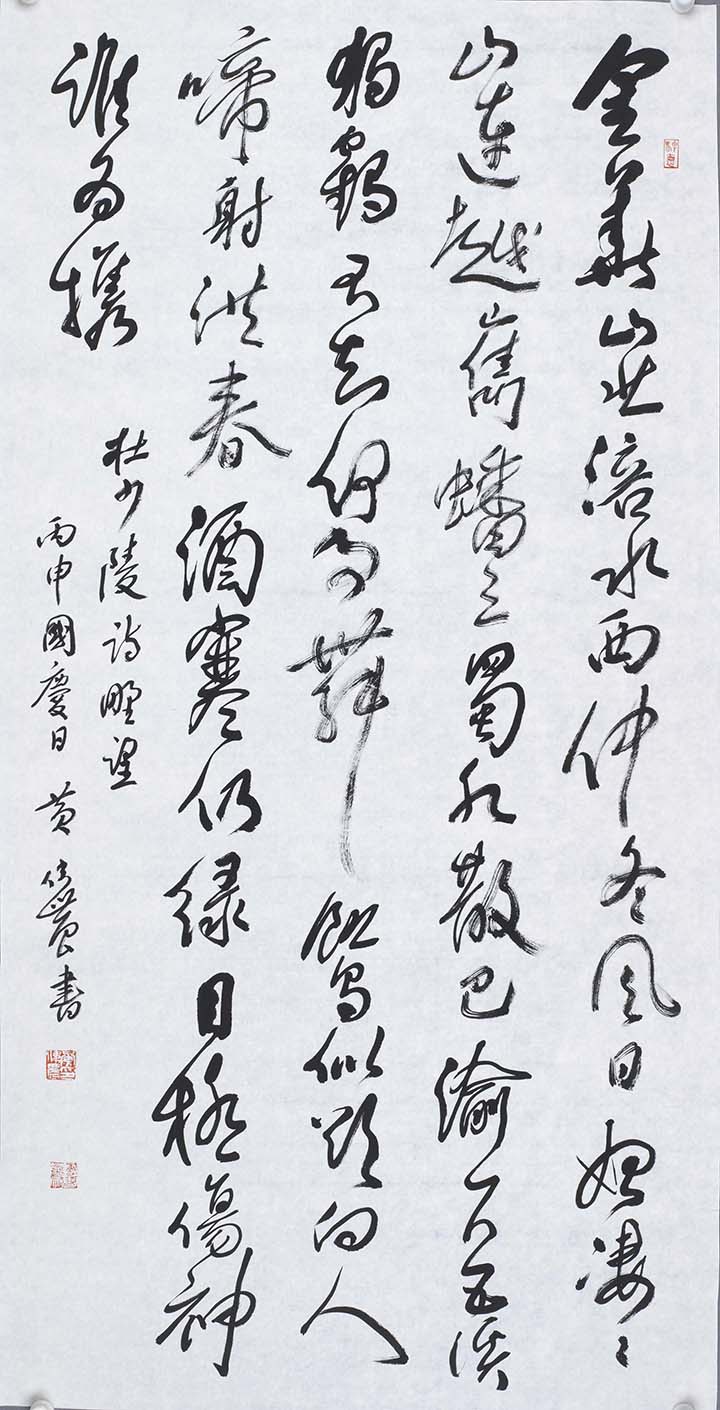 金華山北涪水西仲冬風日始凄々
山連越嶲蟠三蜀水散巴渝下五溪
獨鶴不知何事舞飢烏似欲向人
啼射洪春酒寒仍緑目極傷神
誰為攜
杜少陵詩野望
丙申國慶日 黄農書